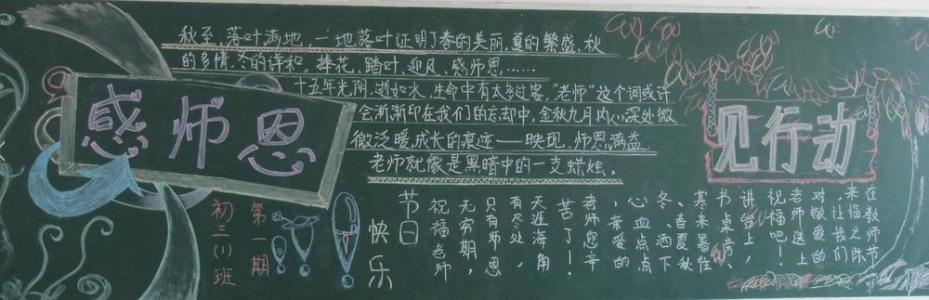 感师恩
秋至,落叶满地,一地落叶证明了春的美丽,夏的繁盛,秋
的多情,冬的详和,捧花、踏叶、迎风、感师恩,……
十五年光阴,逝如水,生命中有太多过客,"老师"这个词或许
会渐渐印在我们的忘却中,金秋九月内心深处微
微泛暖,成长的痕迹——映现,师恩满益,
老师就像是黑暗中的一支蜡烛。
见行动
在教师节
来临之际
,让我们
对敬爱的
老师送上
祝福吧!
讲台上,
书桌旁,
寒来暑往
、春夏秋
冬、洒下
心血点点
,亲爱的
老师您辛
苦了!
天涯海角
有尽处,
只有师恩
无穷期,
祝福老师
节日
快乐
第一期
初三(1)班